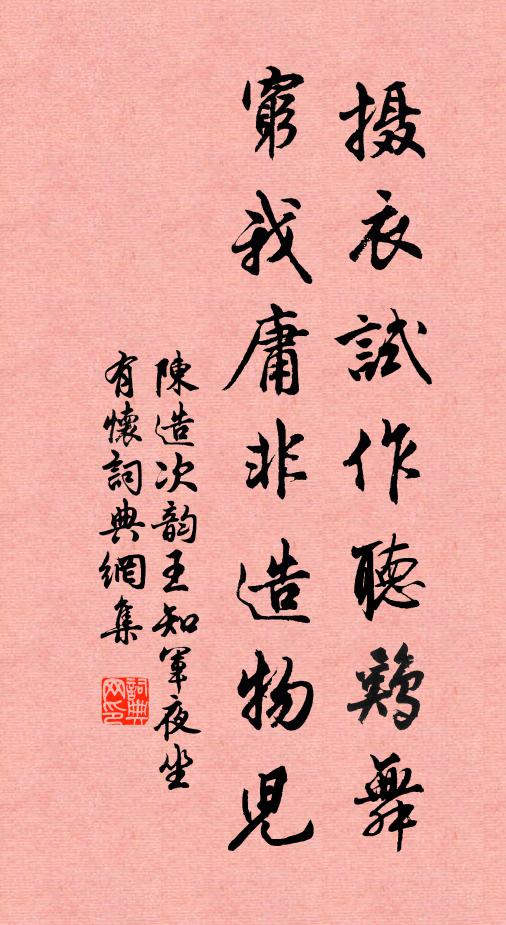 摄衣試作聽鷄舞
窮我庸非造物児
陳造次韵王知軍夜坐
有懷詞典網集
詞典網印